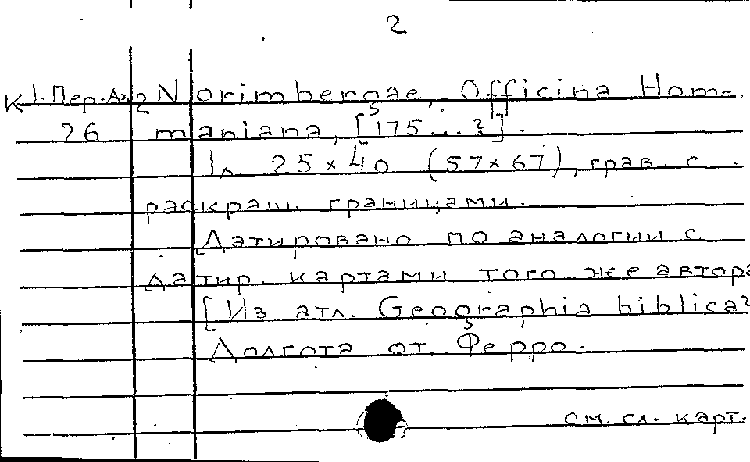 2
К 1-Пер-Аз2 Norimbergae, Officina Hom-
26 manniana, [175...?].
1 л. 25 x 40 (57 x 67), грав. с
раскраш. границами.
Датировано по аналогии с
датир. картами того же автора
[Из атл. Geographia biblica?
Долгота от Ферро.
см. сл. карт.